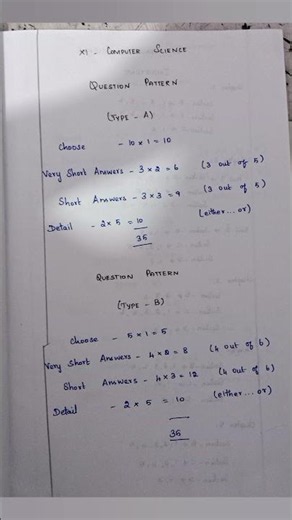 XI - COMPUTER SCIENCE
QUESTION PATTERN
(TYPE - A)
Choose - 10 x 1 = 10
Very Short Answers - 3 x 2 = 6 (3 out of 5)
Short Answers - 3 x 3 = 9 (3 out of 5)
Detail - 2 x 5 = 10 (either... or)
35
QUESTION PATTERN
(TYPE - B)
Choose - 5 x 1 = 5
Very Short Answers - 4 x 2 = 8 (4 out of 6)
Short Answers - 4 x 3 = 12 (4 out of 6)
Detail - 2 x 5 = 10 (either... or)
35